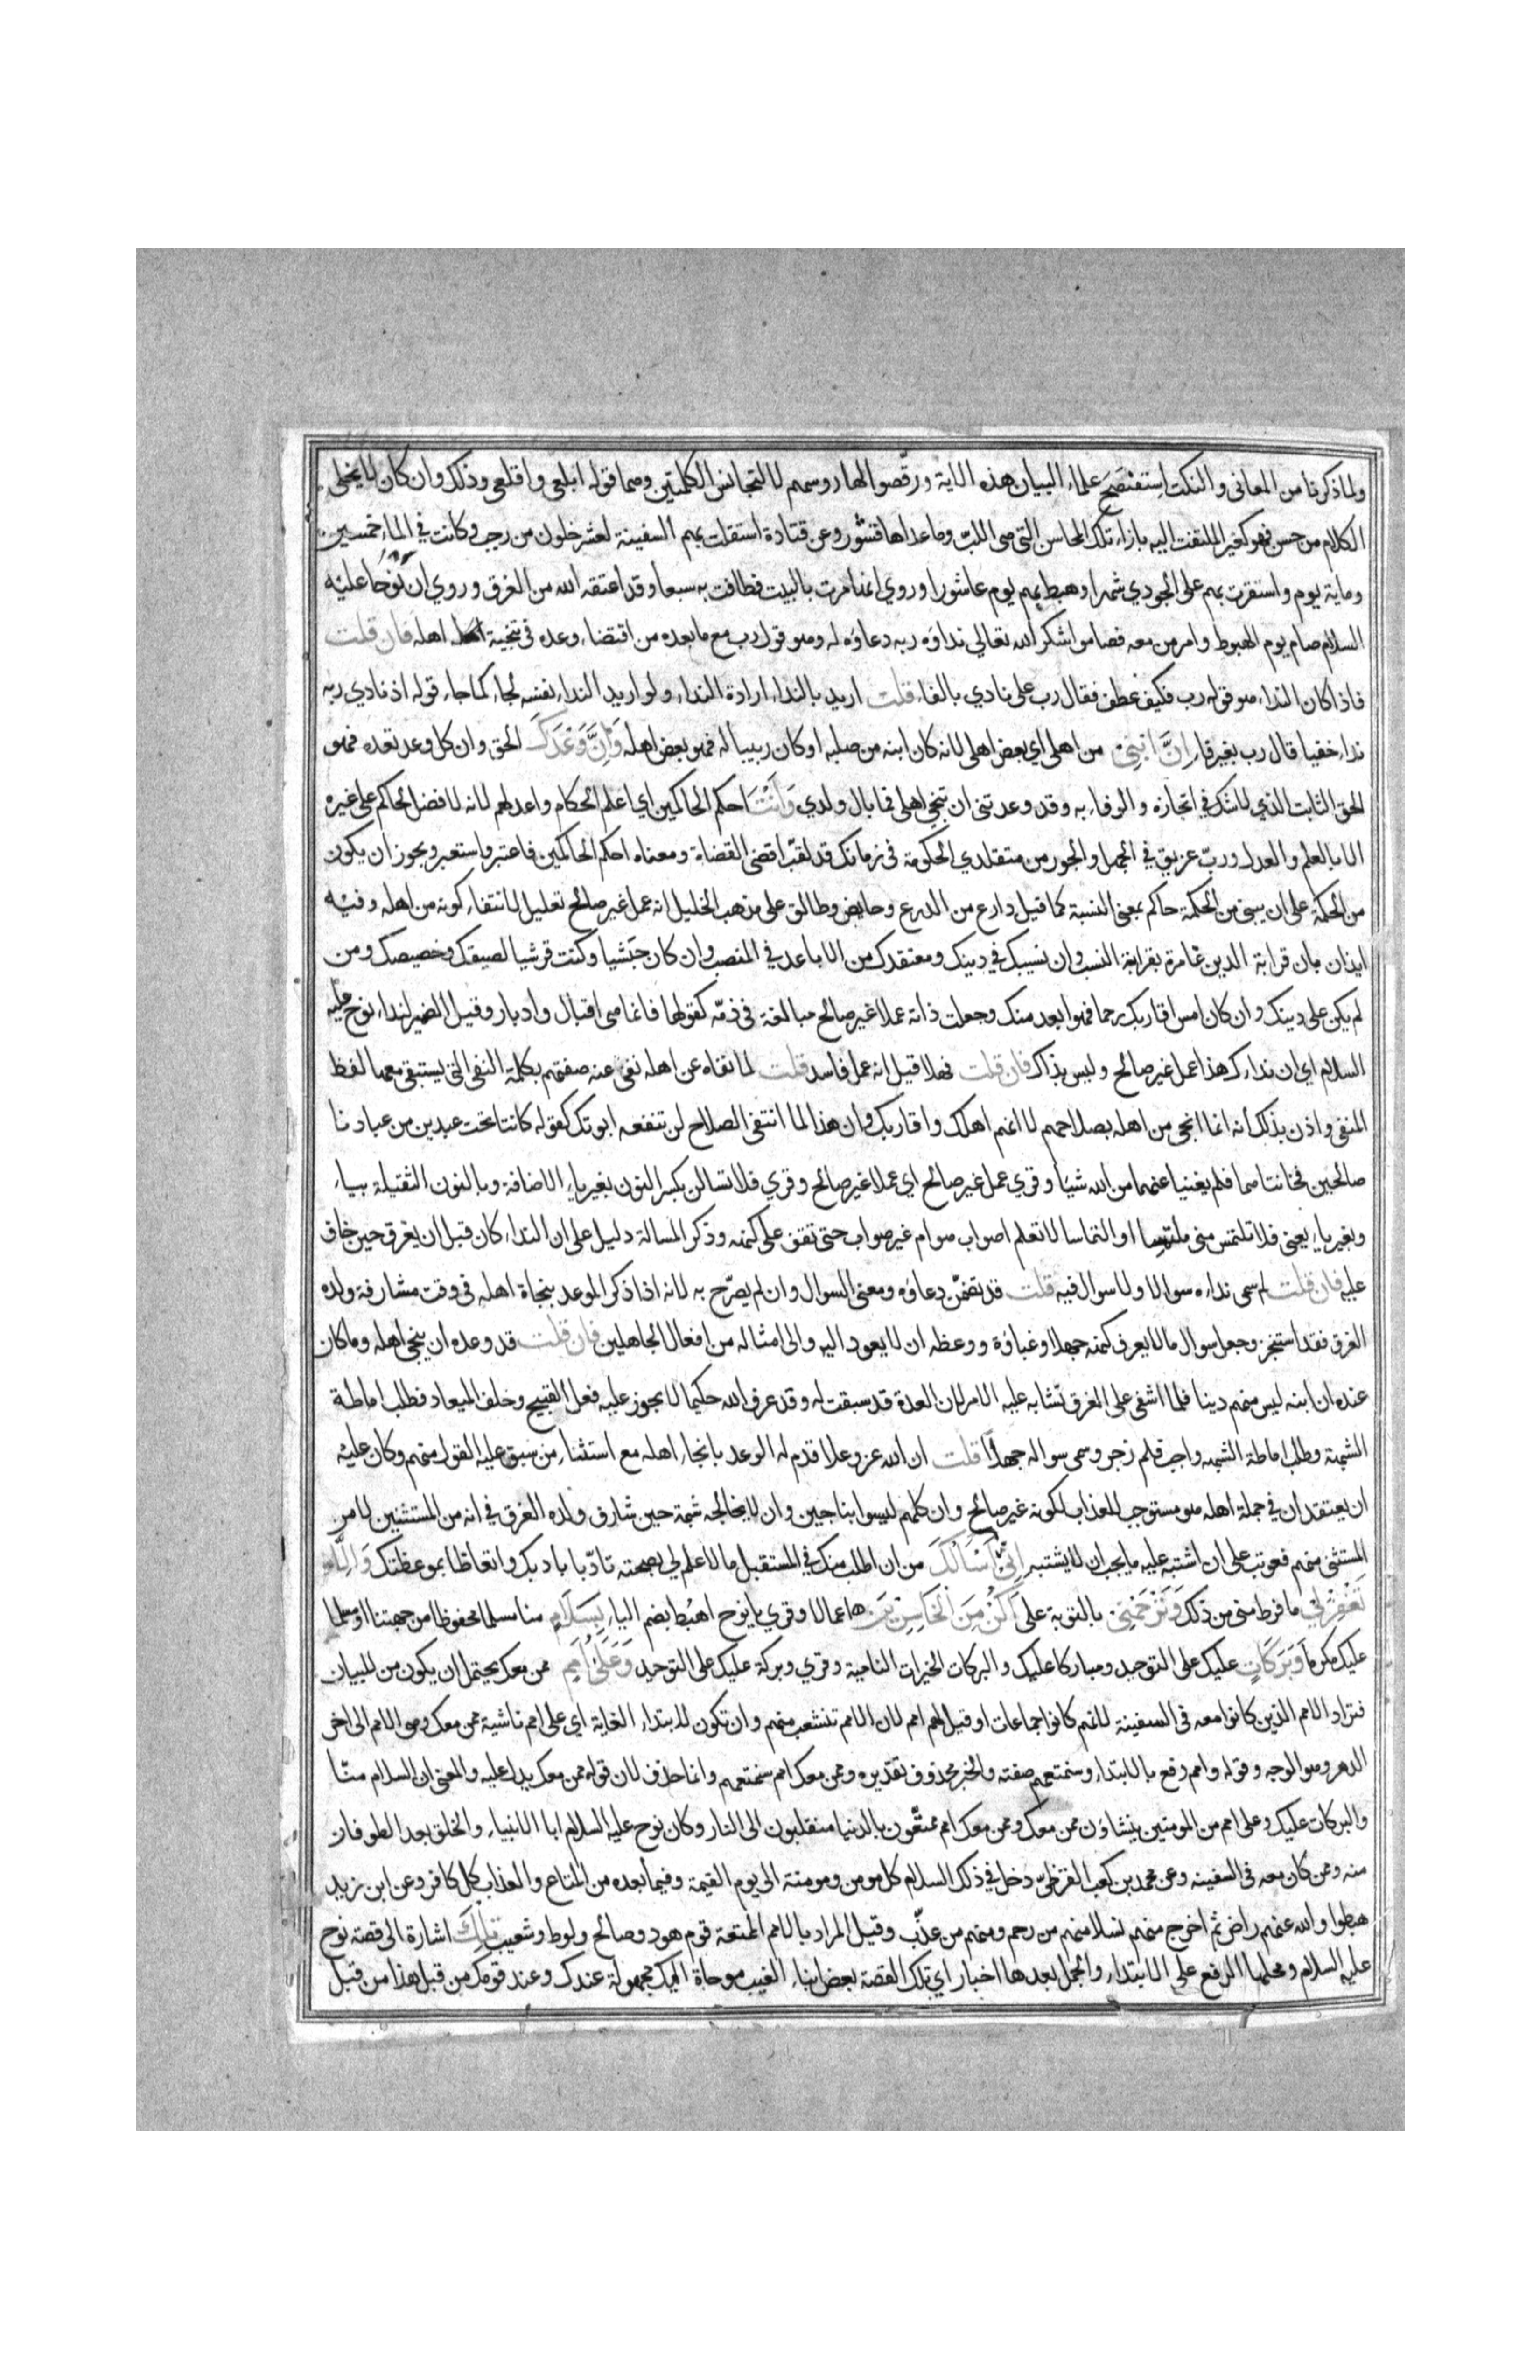 ولما ذكرنا من المعاني والنكت استفصح علماء البيان هذه الاية ورقصوا لها روسهم لا لتجانس الكلمتين وهما قوله ابلعي واقلعي وذلك وان كان لا يخلي
الكلام من حسن فهو كغير الملتفت اليه بازاء تلك المحاسن التي هي اللبّ وما عداها قشور وعن قتادة استقلت بهم السفينة لعشر خلون من رجب وكانت في الماء خمسين
وماية يوم واستقرت بهم على الجودي شهرا وهبط بهم يوم عاشورا وروي انها مرت بالبيت فطافت به سبعا وقد اعتقه الله من الغرق وروي ان نوحا عليه
السلام صام يوم الهبوط وامر من معه فصاموا شكر الله تعالي نداؤه ربه دعاؤه له وهو قول رب مع ما بعده من اقتضاء وعده في تنجية اهله فان قلت
فاذا كان النداء هو قوله رب فكيف عطف فقال رب على نادي بالفاء قلت اريد بالنداء ارادة النداء ولو اريد النداء نفسه لجاء كما جاء قوله اذ نادي ربه
نداء خفيا قال رب بغير فاء إِنَّ ابْنِي من اهلي اي بعض اهلي لانه كان ابنه من صلبه او كان ربيبا له فهو بعض اهله وَإِنَّ وَعْدَكَ الحق وان كل وعد تعده فهو
الحق الثابت الذي لا شك في انجازه والوفاء به وقد وعدتني ان تنجي اهلي فما بال ولدي وَأَنْتَ احكم الحاكمين اي اعلم الحكام واعدلهم لانه لا فضل لحاكم على غيره
الا بالعلم والعدل وربّ عريق في الجهل والجور من متقلدي الحكومة في زمانك قد لقب اقضى القضاة ومعناه احكم الحاكمين فاعتبر واستعبر ويجوز ان يكون
من الحكمة على ان يبنى من الحكمة حاكم بمعنى النسبة كما قيل دارع من الدرع وحايض وطالق على مذهب الخليل انه عمل غير صالح تعليل لانتفاء كونه من اهله وفيه
ايذان بان قرابة الدين غامرة بقرابة النسب وان نسيبك في دينك ومعتقدك من الاباعد في المنصب وان كان حبشيا وكنت قرشيا لصيقك وخصيصك ومن
لم يكن على دينك وان كان امس اقاربك رحما فهو ابعد منك وجعلت ذاته عملا غير صالح مبالغة في ذمّه كقولها فانما هي اقبال وادبار وقيل الضمير لنداء نوح عليه
السلام اي ان نداءك هذا عمل غير صالح وليس بذاك فان قلت فهلا قيل انه عمل فاسد قلت لما نفاه عن اهله نفى عنه صفتهم بكلمة النفي التي يستبقى معها لفظ
المنفي واذن بذلك انه انما انجى من اهله بصلاحهم لا انهم اهلك واقاربك وان هذا لما انتفى الصلاح لن تنفعه ابوتك كقوله كانتا تحت عبدين من عبادنا
صالحين فخانتاهما فلم يغنيا عنهما من الله شيا وقري عمل غير صالح اي عملا غير صالح وقري فلا تسالن بكسر النون بغير ياء الاضافة وبالنون الثقيلة بياء
وبغير ياء يعني فلا تلتمس مني ملتمسا او التماسا لا تعلم اصواب هو ام غير صواب حتى تقف على كنهه وذكر المسالة دليل على ان النداء كان قبل ان يغرق حين خاف
عليه فان قلت لم سمى نداءه سوالا ولا سوال فيه قلت قد تضمن دعاؤه ومعنى السوال وان لم يصرّح به لانه اذا ذكر الموعد بنجاة اهله في وقت مشارفة ولده
الغرق فقد استنجز وجعل سوال ما لا يعرف كنهه جهلا وغباؤة ووعظه ان لا يعود اليه والى امثاله من افعال الجاهلين فان قلت قد وعده ان ينجي اهله وما كان
عنده ان ابنه ليس منهم دينا فلما اشفى على الغرق تشابه عليه الامر لان العدة قد سبقت له وقد عرف الله حكيما لا يجوز عليه فعل القبيح وخلف الميعاد فطلب اماطة
الشبهة وطلب اماطة الشبهه واجب فلم زجر وسمى سواله جهلا قلت ان الله عز وعلا قدم له الوعد بانجاء اهله مع استثناء من سبق عليه القول منهم وكان عليه
ان يعتقد ان في جملة اهله من هو مستوجب للعذاب لكونه غير صالح وان كلهم ليسوا بناجين وان لا يخالجه شبهة حين شارف ولده الغرق في انه من المستثنين لا من
المستثنى منهم فعوتب على ان اشتبه عليه ما يجب ان لا يشتبه أن أَسْأَلَكَ من ان اطلب منك في المستقبل ما لا علم لي بصحته تادّبا بادبك واتعاظا بموعظتك وَإِلَّا
تَغْفِرْ لِي ما فرط مني من ذلك وَتَرْحَمْنِي بالتوبة على أَكُنْ مِنَ الْخَاسِرِينَ اعمالا وقري يا نوح اهبُط بضم الباء بِسَلَامٍ منا مسلما محفوظا من جهتنا او مسلما
عليك مكرما وَبَرَكَاتٍ عليك على التوحيد ومباركا عليك والبركات الخيرات النامية وقري وبركة عليك على التوحيد وَعَلَى أُمَمٍ ممن معك يحتمل ان يكون من للبيان
فتراد الامم الذين كانوا معه في السفينة لانهم كانوا جماعات او قيل لهم امم لان الامم تتشعب منهم وان تكون لابتداء الغاية اي على امم ناشية ممن معك وهي الامم الى اخر
الدهر وهو الوجه وقوله وامم رفع بالابتداء وسنمتعهم صفته والخبر محذوف تقديره وممن معك امم سنمتعهم وانما حذف لان قوله ممن معك يدل عليه والمعنى ان السلام منّا
والبركات عليك وعلى امم من المومنين ينشاؤن ممن معك وممن معك امم ممتّعون بالدنيا منقلبون الى النار وكان نوح عليه السلام ابا الانبياء والخلق بعد الطوفان
منه وممن كان معه في السفينه وعن محمد بن كعب القرظيّ دخل في ذلك السلام كل مومن ومومنة الى يوم القيمة وفيما بعده من المتاع والعذاب كل كافر وعن ابن زيد
هبطوا والله عنهم راض ثم اخرج منهم نسلا منهم من رحم ومنهم من عذّب وقيل المراد بالامم الممتعة قوم هود وصالح ولوط وشعيب تِلْكَ اشارة الى قصة نوح
عليه السلام ومحلها الرفع على الابتداء والجمل بعدها اخبار اي تلك القصة بعض انباء الغيب موحاة اليك مجهولة عندك وعند قومك من قبل هذا من قبل